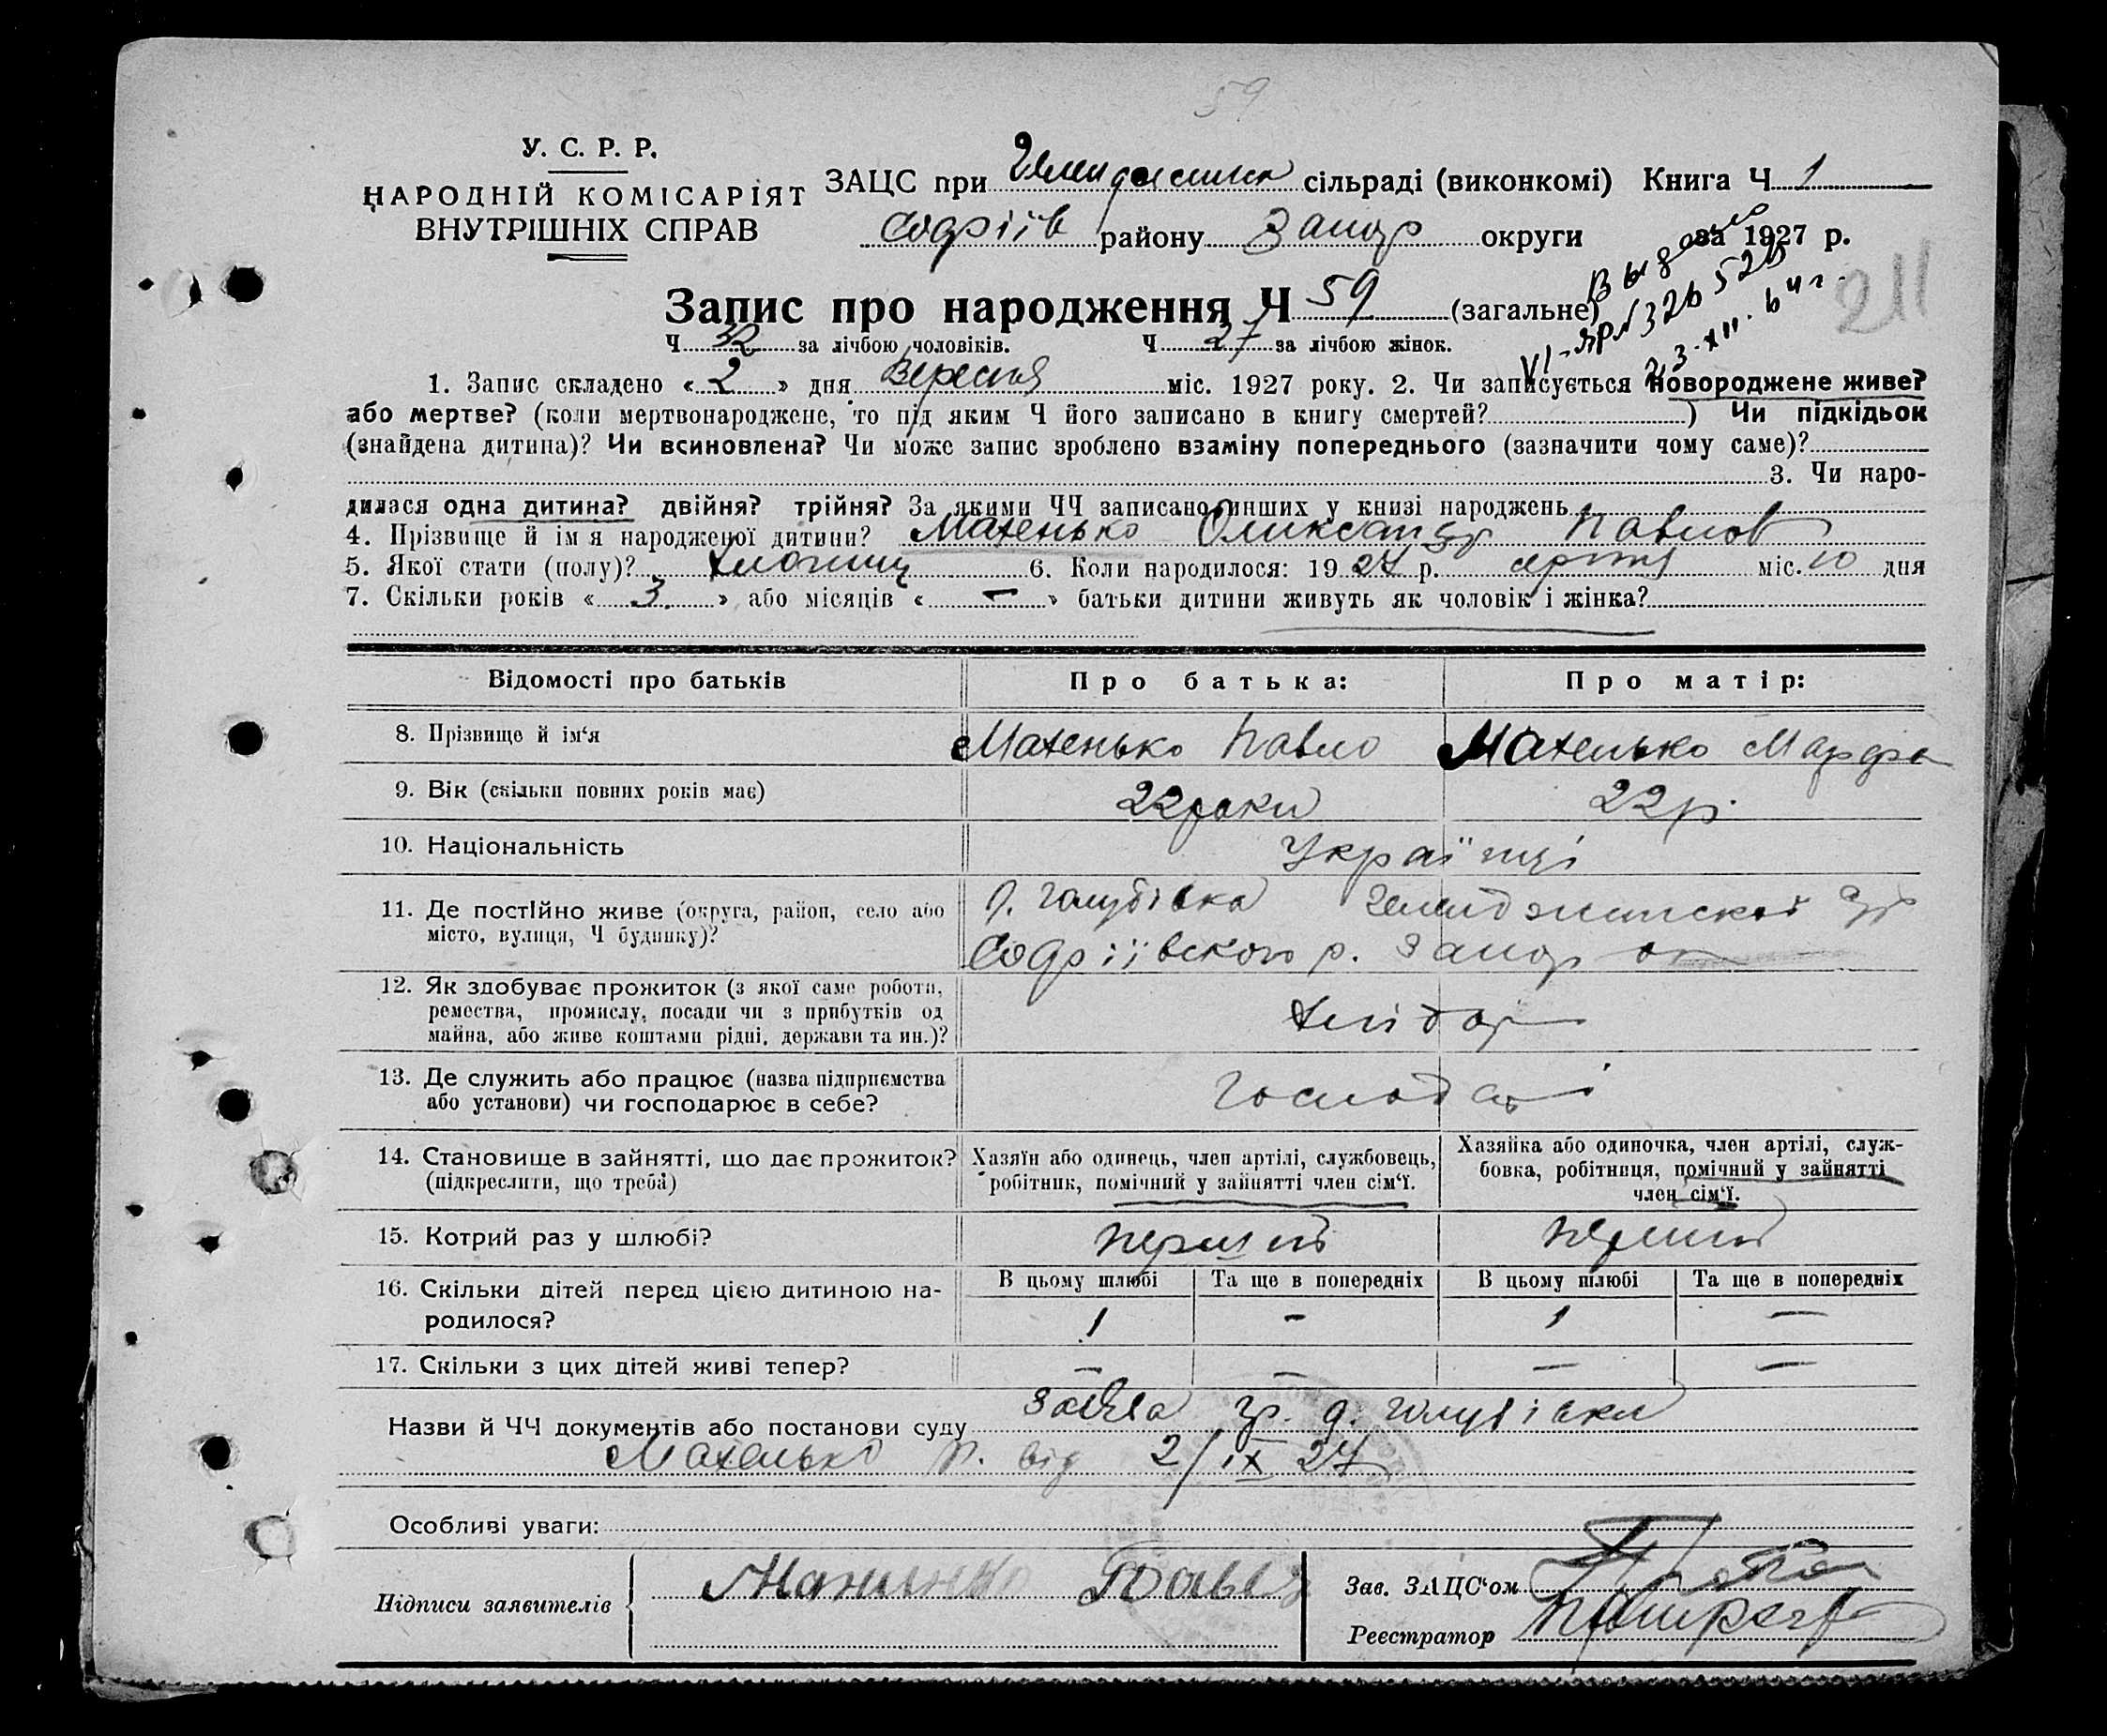 59
У. С. Р. Р.
НАРОДНІЙ КОМІСАРІЯТ
ВНУТРІШНІХ СПРАВ
ЗАЦС при сільраді (виконкомі) Книга Ч 1
Софіїв району Запор округи за 1927 р.
211
Запис про народження Ч 59 (загальне)
Ч 32 за лічбою чоловіків. Ч 27 за лічбою жінок.
1. Запис складено « 2 » дня Вересня міс. 1927 року. 2. Чи записується новороджене живе?
або мертве? (коли мертвонароджене, то під яким Ч його записано в книгу смертей? ) Чи підкідьок
(знайдена дитина)? Чи всиновлена? Чи може запис зроблено взаміну попереднього (зазначити чому саме)?
3. Чи наро-
дилася одна дитина? двійня? трійня? За якими ЧЧ записано инших у книзі народжень
4. Прізвище й ім'я народженої дитини? Махенько Олександр Павлов
5. Якої стати (полу)? Хлопчик 6. Коли народилося: 1927 р. серпня міс. 10 дня
7. Скільки років « 3 » або місяців « — » батьки дитини живуть як чоловік і жінка?
Відомості про батьків Про батька: Про матір:
8. Прізвище й ім'я Махенько Павло Махенько Марфа
9. Вік (скільки повних років має) 22 роки 22 р.
10. Національність Українці
11. Де постійно живе (округа, район, село або місто, вулиця, Ч будинку)? Голубівка
Софіївского р. Запор ок
12. Як здобуває прожиток (з якої саме роботи,
ремества, промислу, посади чи з прибутків од
майна, або живе коштами рідні, держави та ин.)? Хлібор
13. Де служить або працює (назва підприємства
або установи) чи господарює в себе? Господарі
14. Становище в зайнятті, що дає прожиток?
(підкреслити, що треба)
Хазяїн або одинець, член артілі, службовець,
робітник, помічний у зайнятті член сім'ї.
Хазяйка або одиночка, член артілі, служ-
бовка, робітниця, помічний у зайнятті
член сім'ї.
15. Котрий раз у шлюбі? перший перший
16. Скільки дітей перед цією дитиною на-
родилося?
В цьому шлюбі Та ще в попередніх В цьому шлюбі Та ще в попередніх
1 — 1 —
17. Скільки з цих дітей живі тепер? — — — —
Назви й ЧЧ документів або постанови суду Заява гр. д. Голубівки
Махенько П. від 2/IX 27
Особливі уваги:
Підписи заявителів
Зав. ЗАЦС'ом
Реєстратор